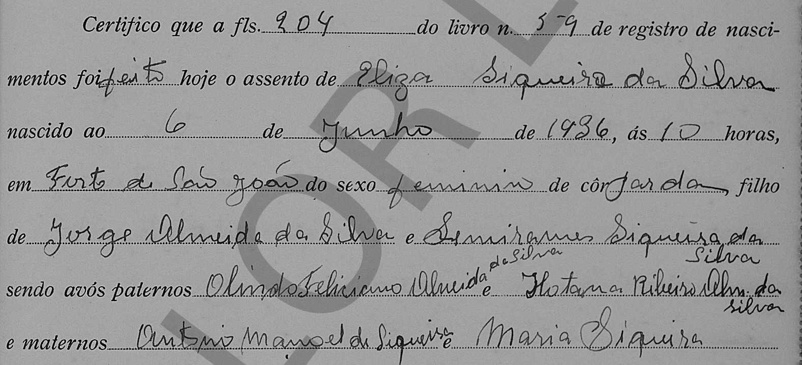 Certifico que a fls. 204 do livro n. 579 de registro de nasci-
mentos foi feito hoje o assento de Eliza Siqueira da Silva
nascido ao 6 de Junho de 1936, ás 10 horas,
em Forte de São João do sexo feminin de côr parda, filho
de Jorge Almeida da Silva e Semirames Siqueira da Silva
sendo avós paternos Olindo Feliciano Almeida da Silva e Ribeiro Alm. da Silva
e maternos Antonio Manoel de Siqueira e Maria Siqueira